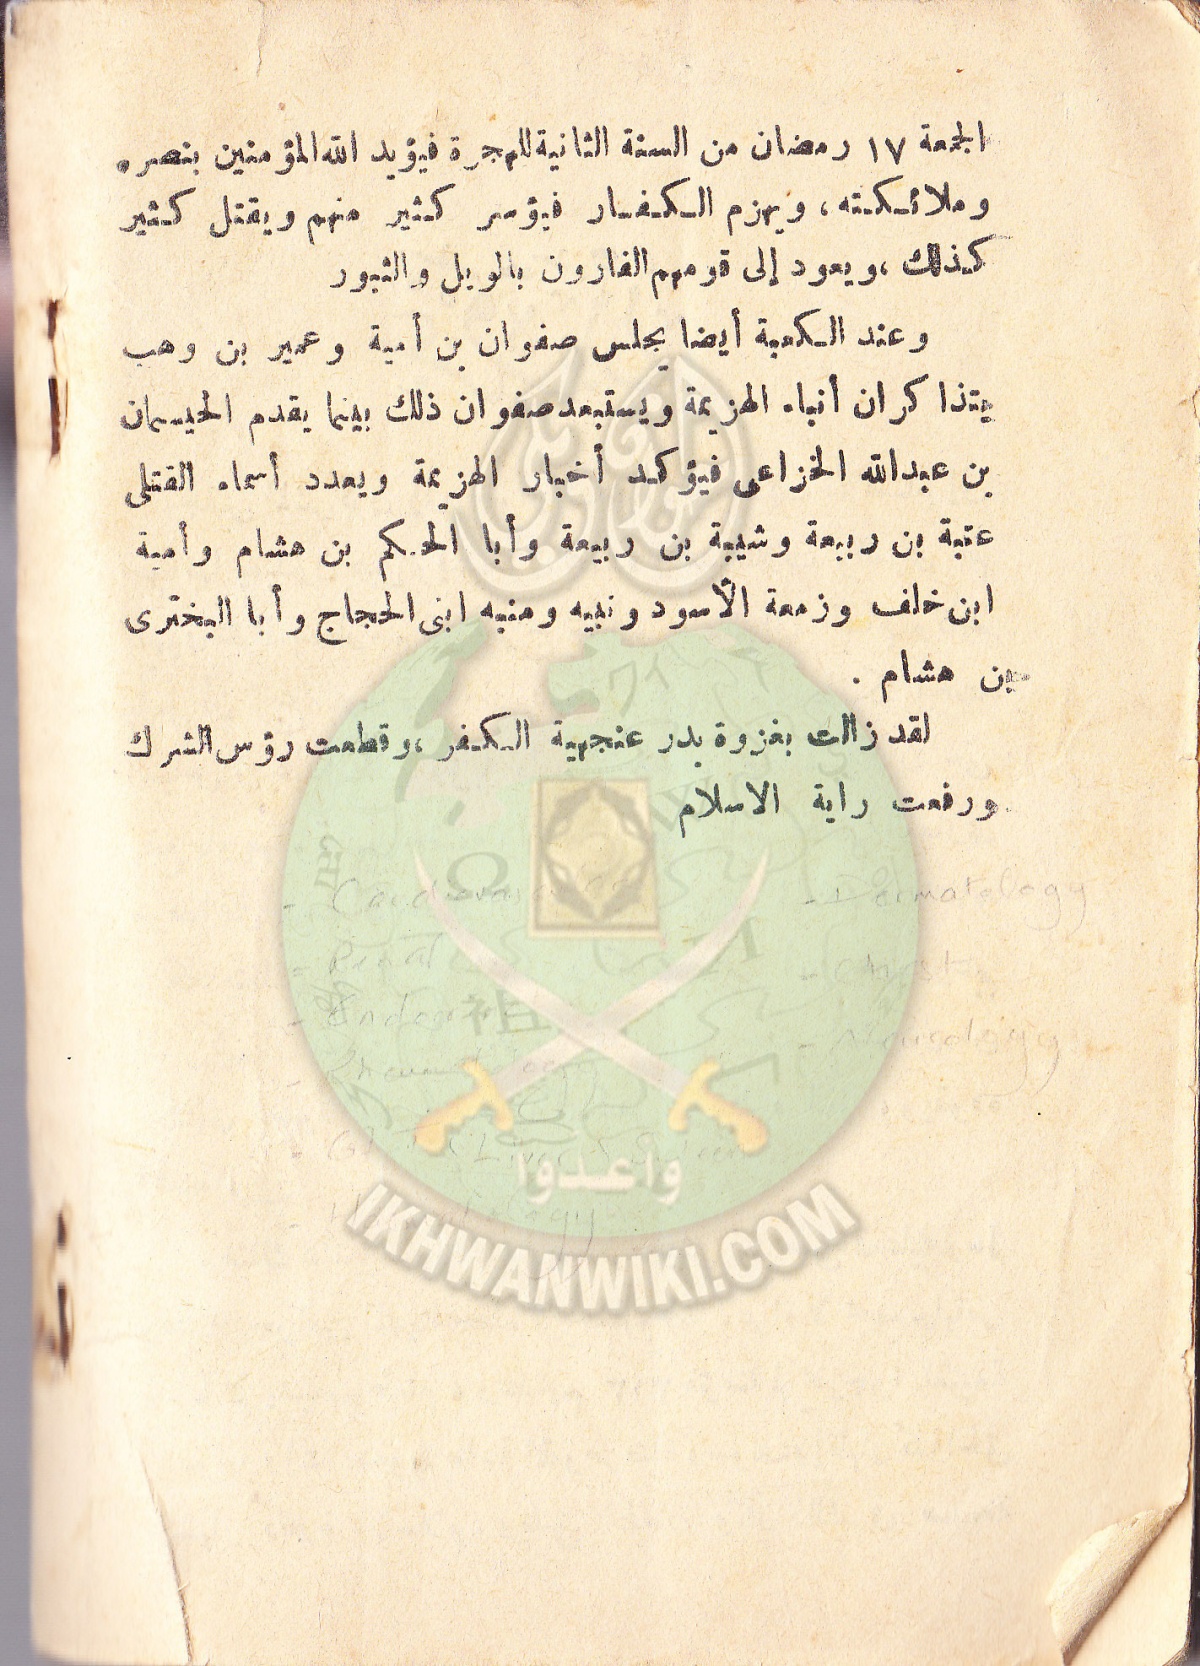 الجمعة ١٧ رمضان من السنة الثانية للهجرة فيؤيد الله المؤمنين بنصره
وملائكته، ويهزم الكفار فيؤسر كثير منهم ويقتل كثير
كذلك، ويعود إلى قومهم الفارون بالويل والثبور
وعند الكعبة أيضا يجلس صفوان بن أمية وعمير بن وهب
يتذاكران أنباء الهزيمة ويستبعد صفوان ذلك بينما يقدم الحيسمان
بن عبدالله الخزاعى فيؤكد أخبار الهزيمة ويعدد أسماء القتلى
عتبة بن ربيعة وشيبة بن ربيعة وأبا الحكم بن هشام وأمية
ابن خلف وزمعة الأسود ونبيه ومنبه ابنى الحجاج وأبا البخترى
بن هشام .
لقد زالت بغزوة بدر عنجهية الكفر، وقطعت رؤس الشرك
ورفعت راية الاسلام
- Dermatology
- Renal
- Chest
- Neurology
وأعدوا
IKHWANWIKI.COM